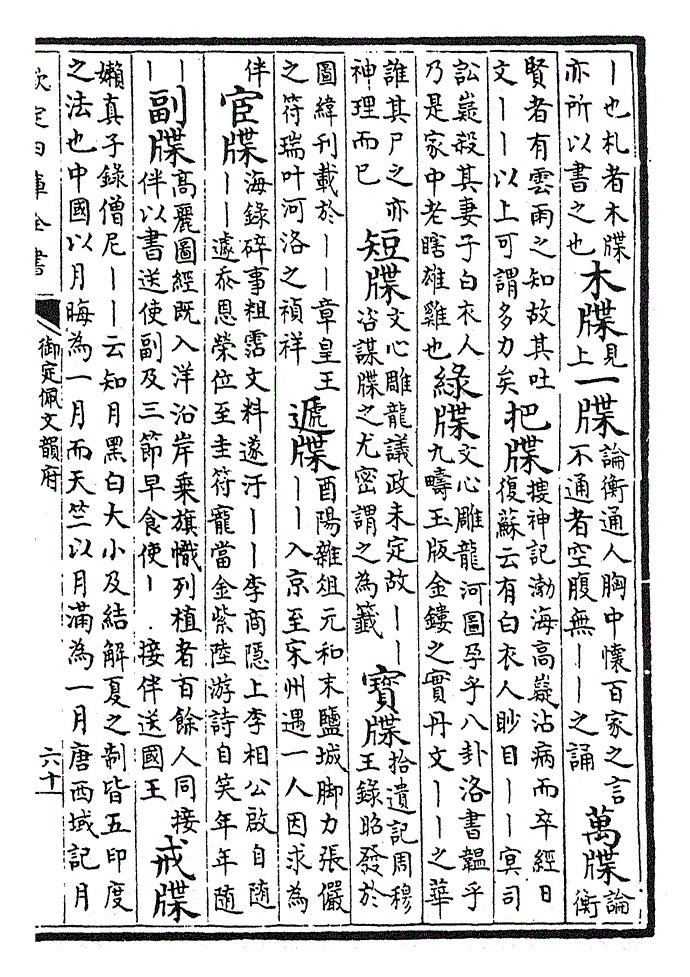 丨也札者木牒亦所以書之也 木牒 見上 一牒 論衡通人胸中懷百家之言不通者空腹無丨丨之誦 萬牒 論衡
賢者有雲雨之知故其吐文丨丨以上可謂多力矣 把牒 搜神記渤海高嶷沾病而卒經日復蘇云有白衣人眇目丨丨冥司
訟嶷殺其妻子白衣人乃是家中老瞎雄雞也 綠牒 文心雕龍河圖孕乎八卦洛書韞乎九疇玉版金鏤之實丹文丨丨之華
誰其尸之亦神理而已 短牒 文心雕龍議政未定故丨丨咨謀牒之尤密謂之為籤 寳牒 拾遺記周穆王錄昭發於
圖緯刊載於丨丨章皇王之符瑞叶河洛之禎祥 遞牒 酉陽雜俎元和末鹽城脚力張儼丨丨入京至宋州遇一人因求為
伴 宦牒 海錄碎事粗霑文料遂汙丨丨李商隱上李相公啟自隨丨丨遽忝恩榮位至圭符寵當金紫陸游詩自笑年年隨
丨丨 副牒 高麗圖經既入洋沿岸乗旗幟列植者百餘人同接伴以書送使副及三節早食使丨．接伴送國王 戒牒
嬾真子錄僧尼丨丨云知月黑白大小及結解夏之制皆五印度之法也中國以月晦為一月而天竺以月滿為一月唐西域記月
欽定四庫全書 御定佩文韻府 六十一